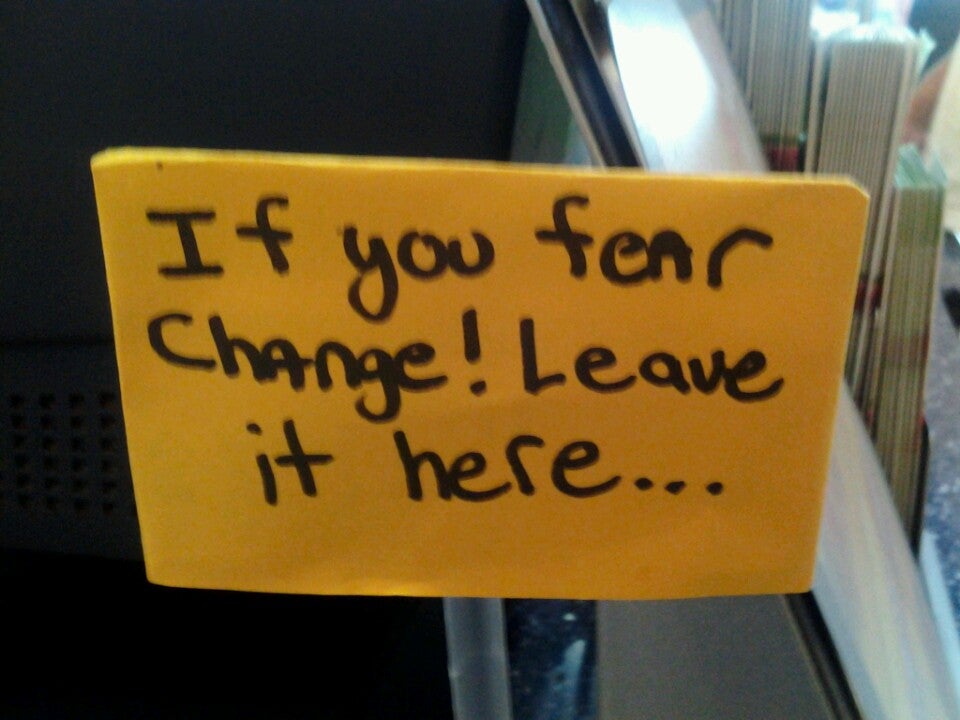 If you fear
Change! Leave
it here...